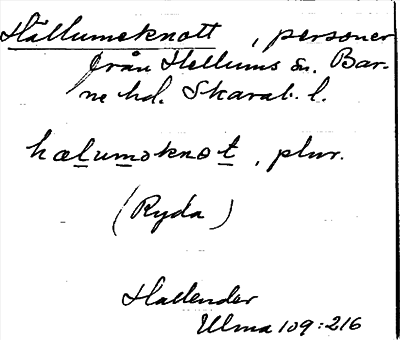 Hällumeknott, personer
från Hellums sn. Bar-
ne hd. Skarab. l.
hælumoknot, plur.
(Ryda)
Hallender
Ulma 109:216